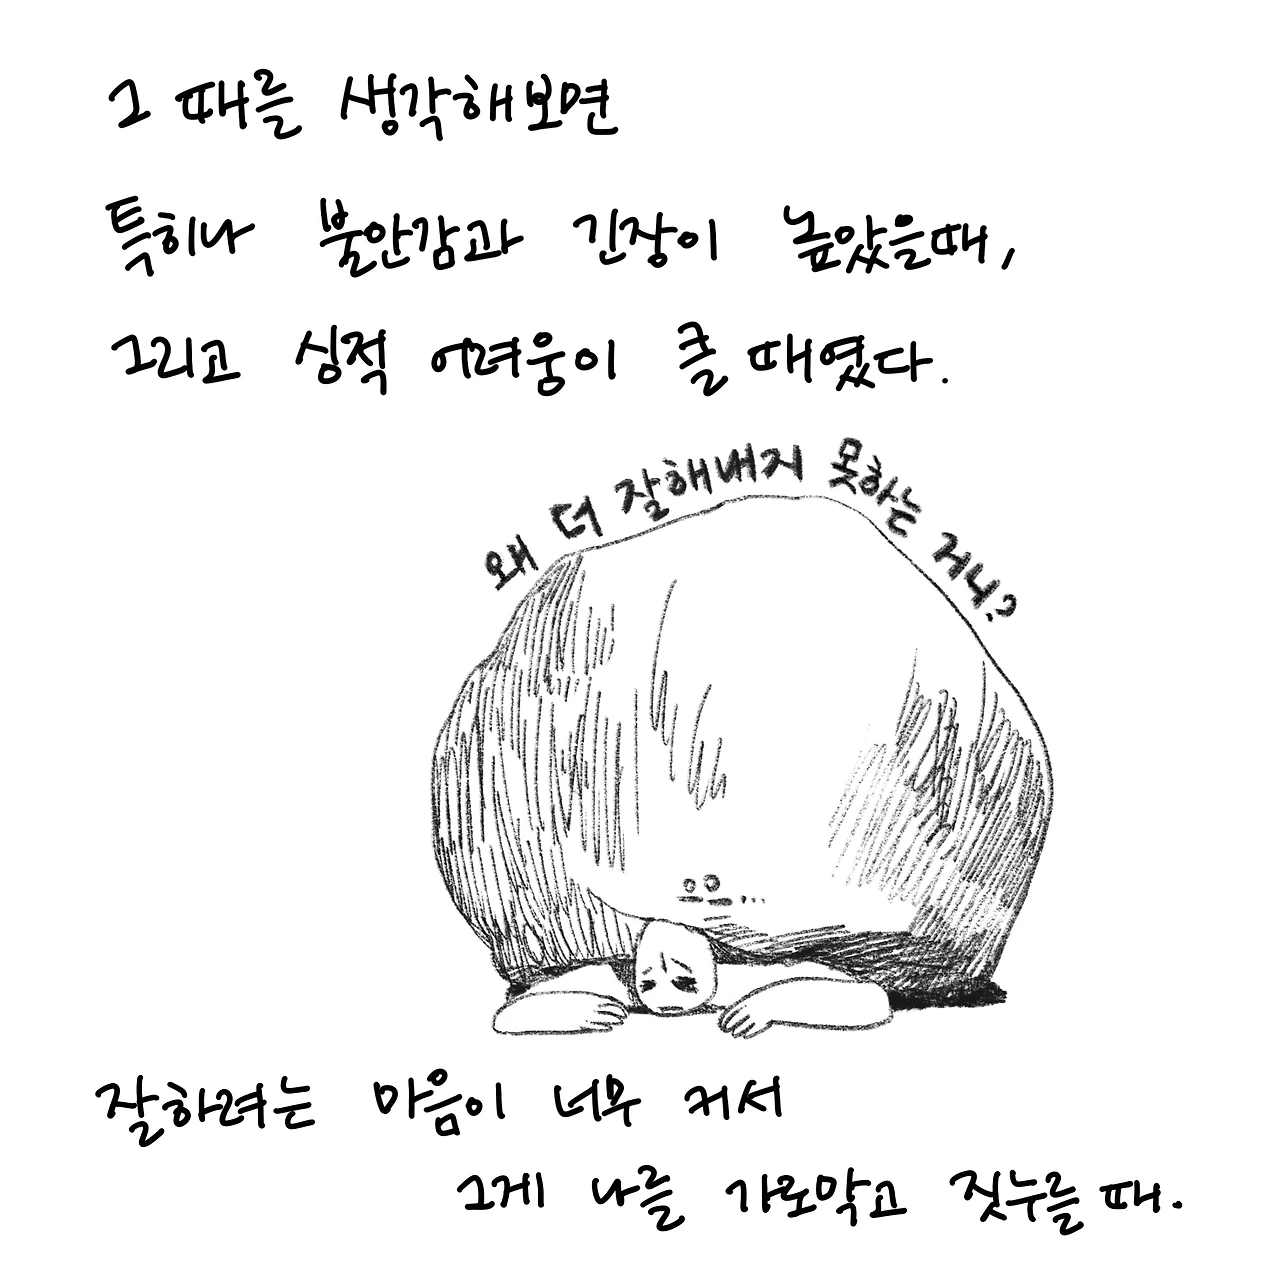 그 때를 생각해보면
특히나 불안감과 긴장이 높았을때,
그리고 심적 어려움이 클 때였다.
왜 더 잘해내지 못하는 거니?
으으...
잘하려는 마음이 너무 커서
그게 나를 가로막고 짓누를 때.